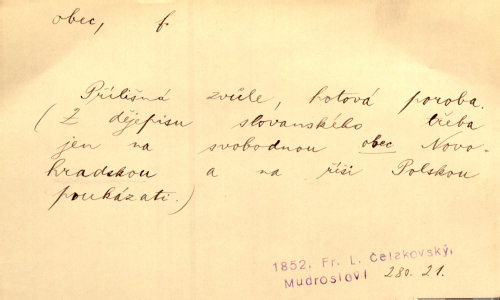 obec, f.
Přílišná zvůle, hotová poroba.
(Z dějepisu slovanského třeba
jen na svobodnou obec Novo-
hradskou a na říši Polskou
poukázati.)
1852. Fr. L. Čelakovský,
Mudrosloví 280. 21.